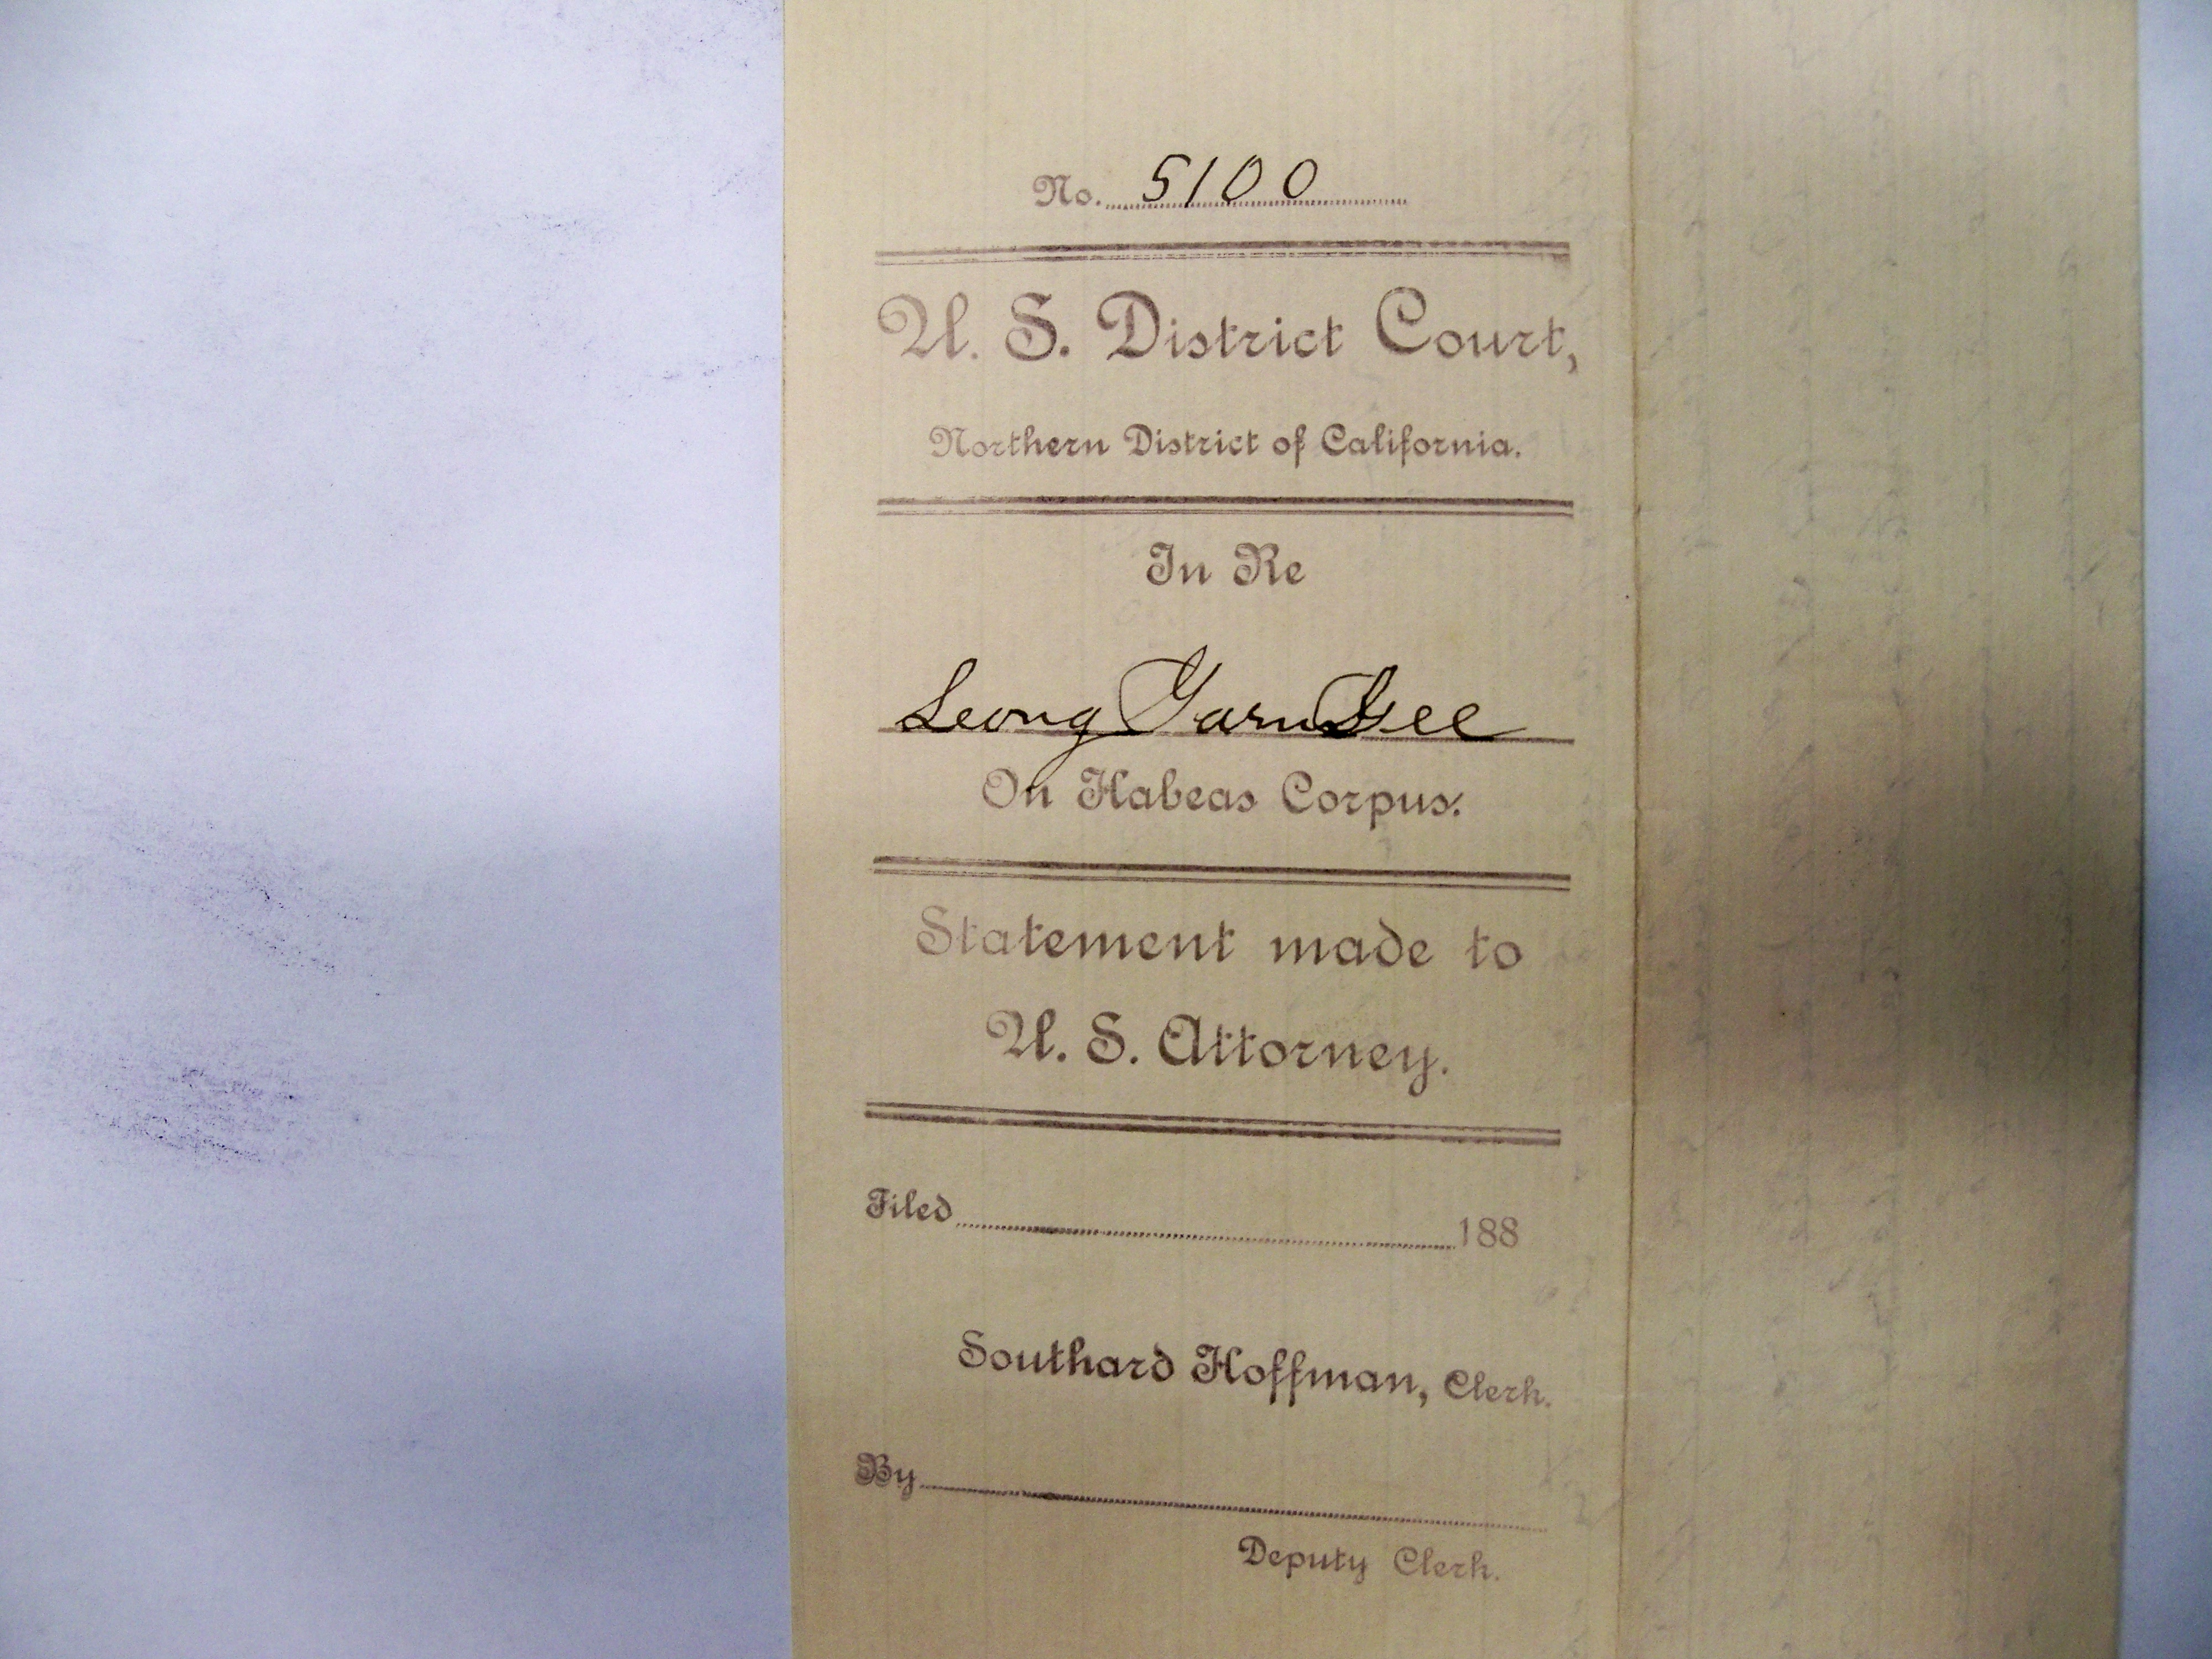 No. 5100
U. S. District Court,
Northern District of California.
In Re
Leong Yarn Gee
On Habeas Corpus.
Statement made to
U. S. Attorney.
Filed 188
Southard Hoffman, Clerk.
By
Deputy Clerk.